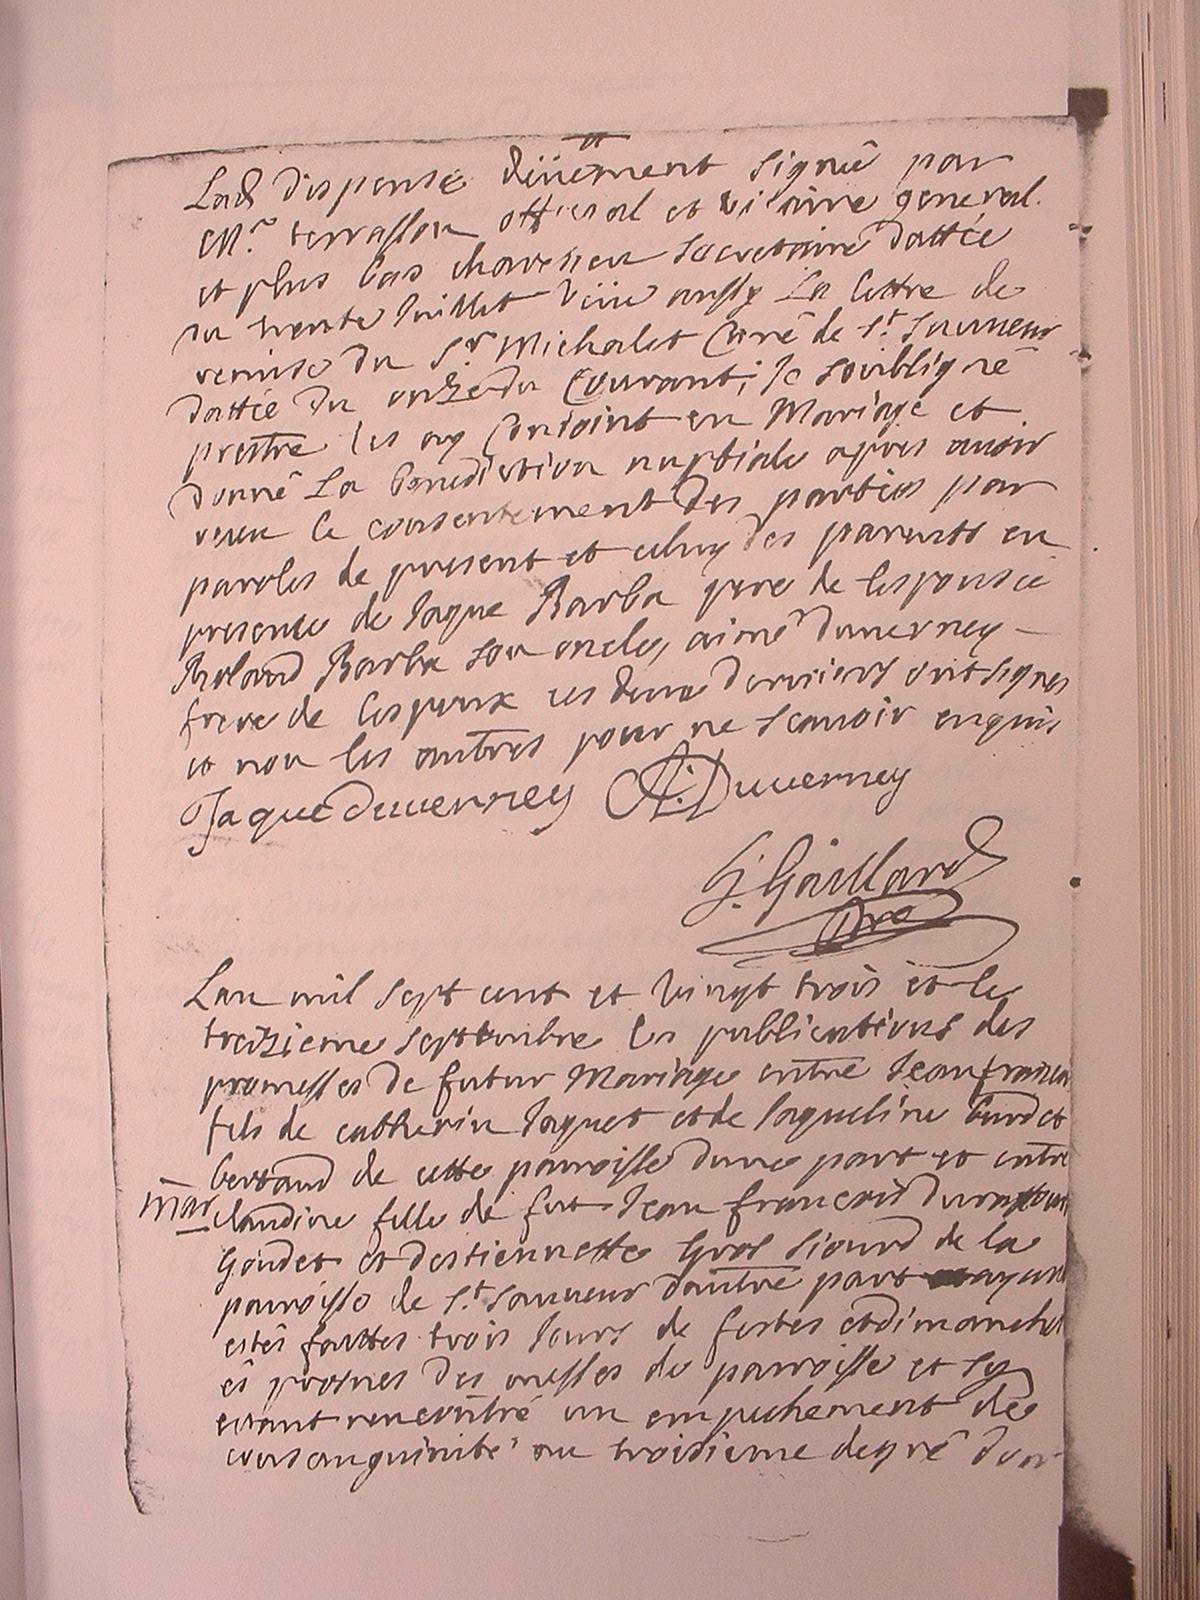 Lad dispense düement signée par
Mr. terrasson official et vicaire general
et plus bas secretaire dattée
du trente Juillet veüe aussy La lettre de
remise du Sr Michalet Curé de St. Sauveur
dattée du onze du Courant, Je soubsigné
prestre les ay Conioint en Mariage et
donné La benediction nuptiale apres avoir
receu le consentement des parties par
paroles de present et celuy des parents en
presence de Jaque Barba pere de lespousée
Roland Barba son oncle, aimé duverney
frere de lespoux ces deux derniers ont signes
et non les autres pour ne scavoir enquis
Jaque duverney A. Duverney
J. Gaillard
ptre
Lan mil sept cent et vingt trois et le
treizieme septembre les publications des
promesses de futur Mariage entre Jean francois
fils de catherin Jaquet et de Jaqueline burdet
bertaud de cette parroisse dune part et entre
Mar
claudine fille de fut Jean francois
goudet et destiennette gros de la
parroisse de St. Sauveur dautre part ayant
estés faittes trois Jours de festes et dimanches
és prosnes des messes de parroisse et sy
estant rencontré un empechement de
consanguinité au troisieme degré dont